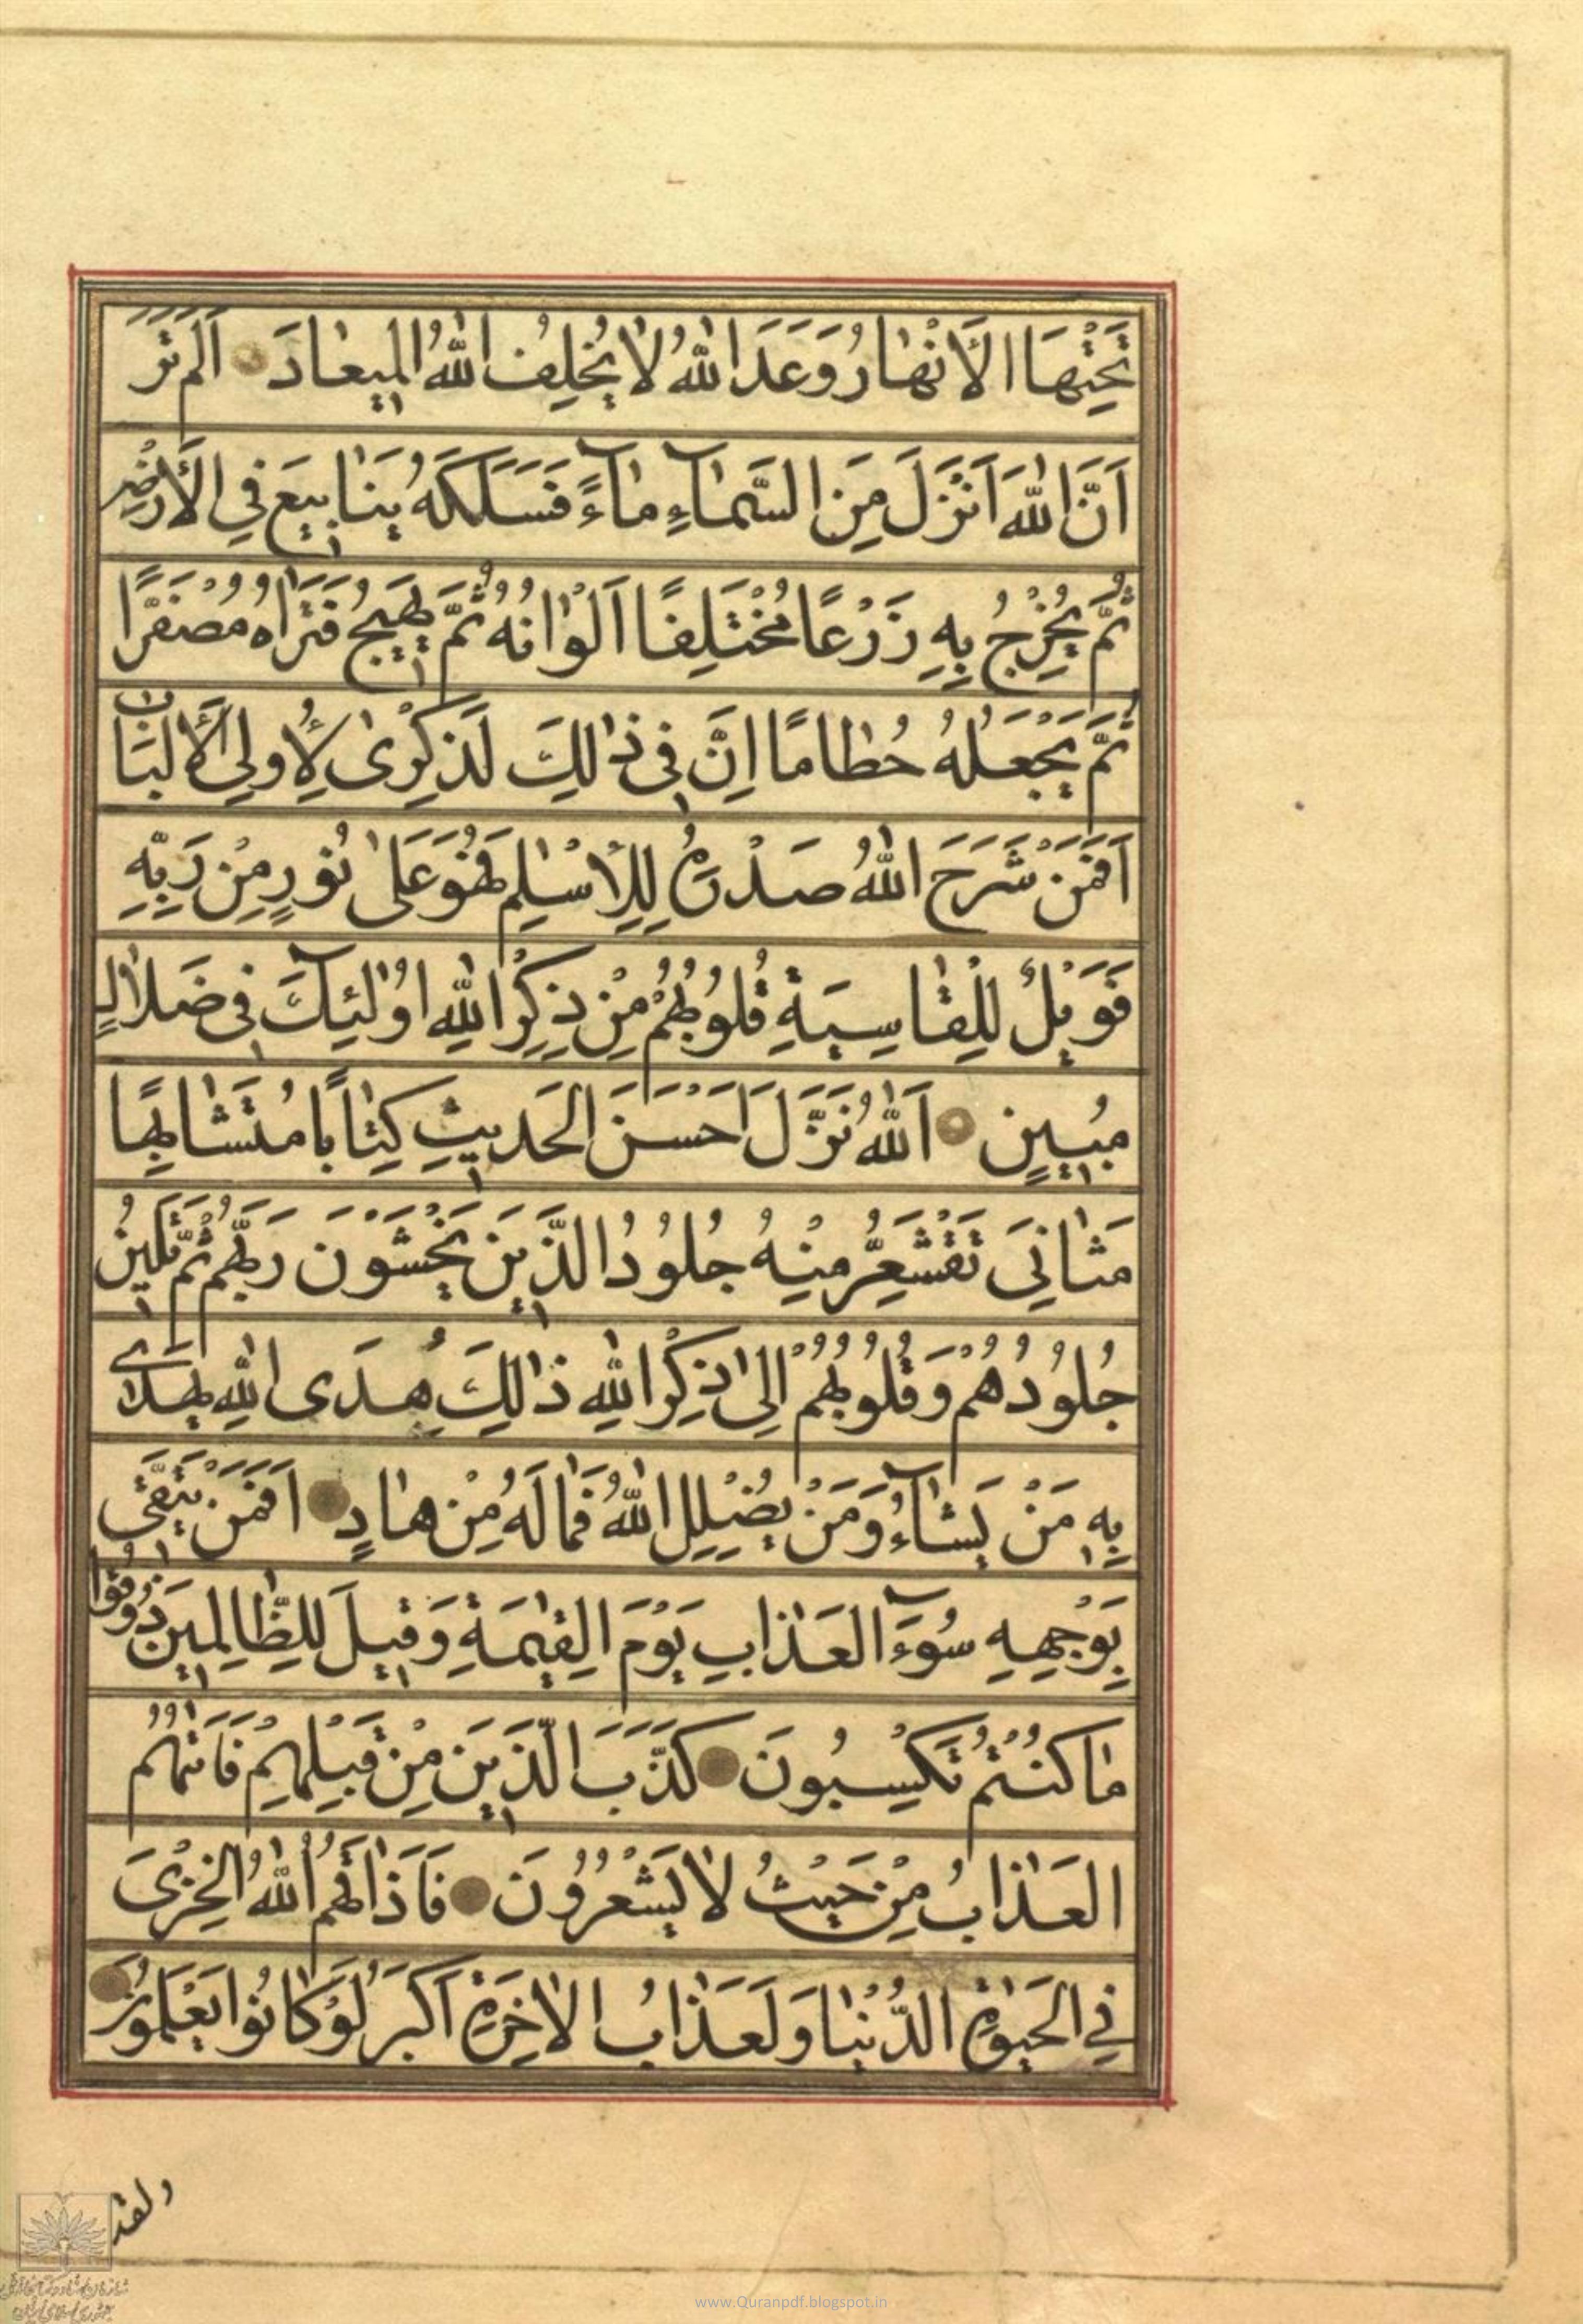 تَحْتِهَا الْأَنْهَارُ وَعَدَ اللهُ لَا يُخْلِفُ اللهُ الْمِيعَادَ اَلَمْ تَرَ
اَنَّ اللهَ اَنْزَلَ مِنَ السَّمَآءِ مَآءً فَسَلَكَهُ يَنَابِيعَ فِي الْأَرْضِ
ثُمَّ يُخْرِجُ بِهِ زَرْعًا مُخْتَلِفًا اَلْوَانُهُ ثُمَّ يَهِيجُ فَتَرَاهُ مُصْفَرًّا
ثُمَّ يَجْعَلُهُ حُطَامًا اِنَّ فِي ذَالِكَ لَذِكْرَى لِأُولِي الْأَلْبَابِ
اَفَمَنْ شَرَحَ اللهُ صَدْرَهُ لِلْإِسْلٰمِ فَهُوَ عَلَى نُورٍ مِنْ رَبِّهِ
فَوَيْلٌ لِلْقَاسِيَةِ قُلُوبُهُمْ مِنْ ذِكْرِ اللهِ اُولٰٓئِكَ فِي ضَلَالٍ
مُبِينٍ اَللهُ نَزَّلَ اَحْسَنَ الْحَدِيثِ كِتَابًا مُتَشَابِهًا
مَثَانِيَ تَقْشَعِرُّ مِنْهُ جُلُودُ الَّذِينَ يَخْشَوْنَ رَبَّهُمْ ثُمَّ تَلِينُ
جُلُودُهُمْ وَقُلُوبُهُمْ اِلَى ذِكْرِ اللهِ ذَالِكَ هُدَى اللهِ يَهْدِي
بِهِ مَنْ يَشَآءُ وَمَنْ يُضْلِلِ اللهُ فَمَا لَهُ مِنْ هَادٍ اَفَمَنْ يَتَّقِي
بِوَجْهِهِ سُوٓءَ الْعَذَابِ يَوْمَ الْقِيٰمَةِ وَقِيلَ لِلظَّالِمِينَ ذُوقُوا
مَا كُنْتُمْ تَكْسِبُونَ كَذَّبَ الَّذِينَ مِنْ قَبْلِهِمْ فَاَتٰهُمُ
الْعَذَابُ مِنْ حَيْثُ لَا يَشْعُرُونَ فَاَذَاقَهُمُ اللهُ الْخِزْيَ
فِي الْحَيٰوةِ الدُّنْيَا وَلَعَذَابُ الْاٰخِرَةِ اَكْبَرُ لَوْ كَانُوا يَعْلَمُونَ
ولقد
www.Quranpdf.blogspot.in